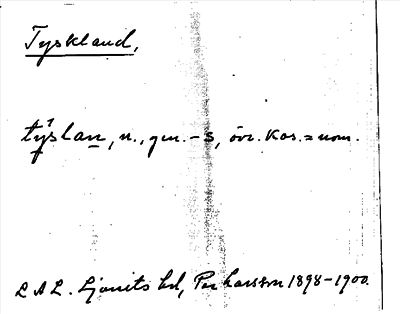 Tyskland,
týslan, n., gen. -s, övr. kas. = nom.
L A L. Ljunits hd, Per Larsson 1898-1900.